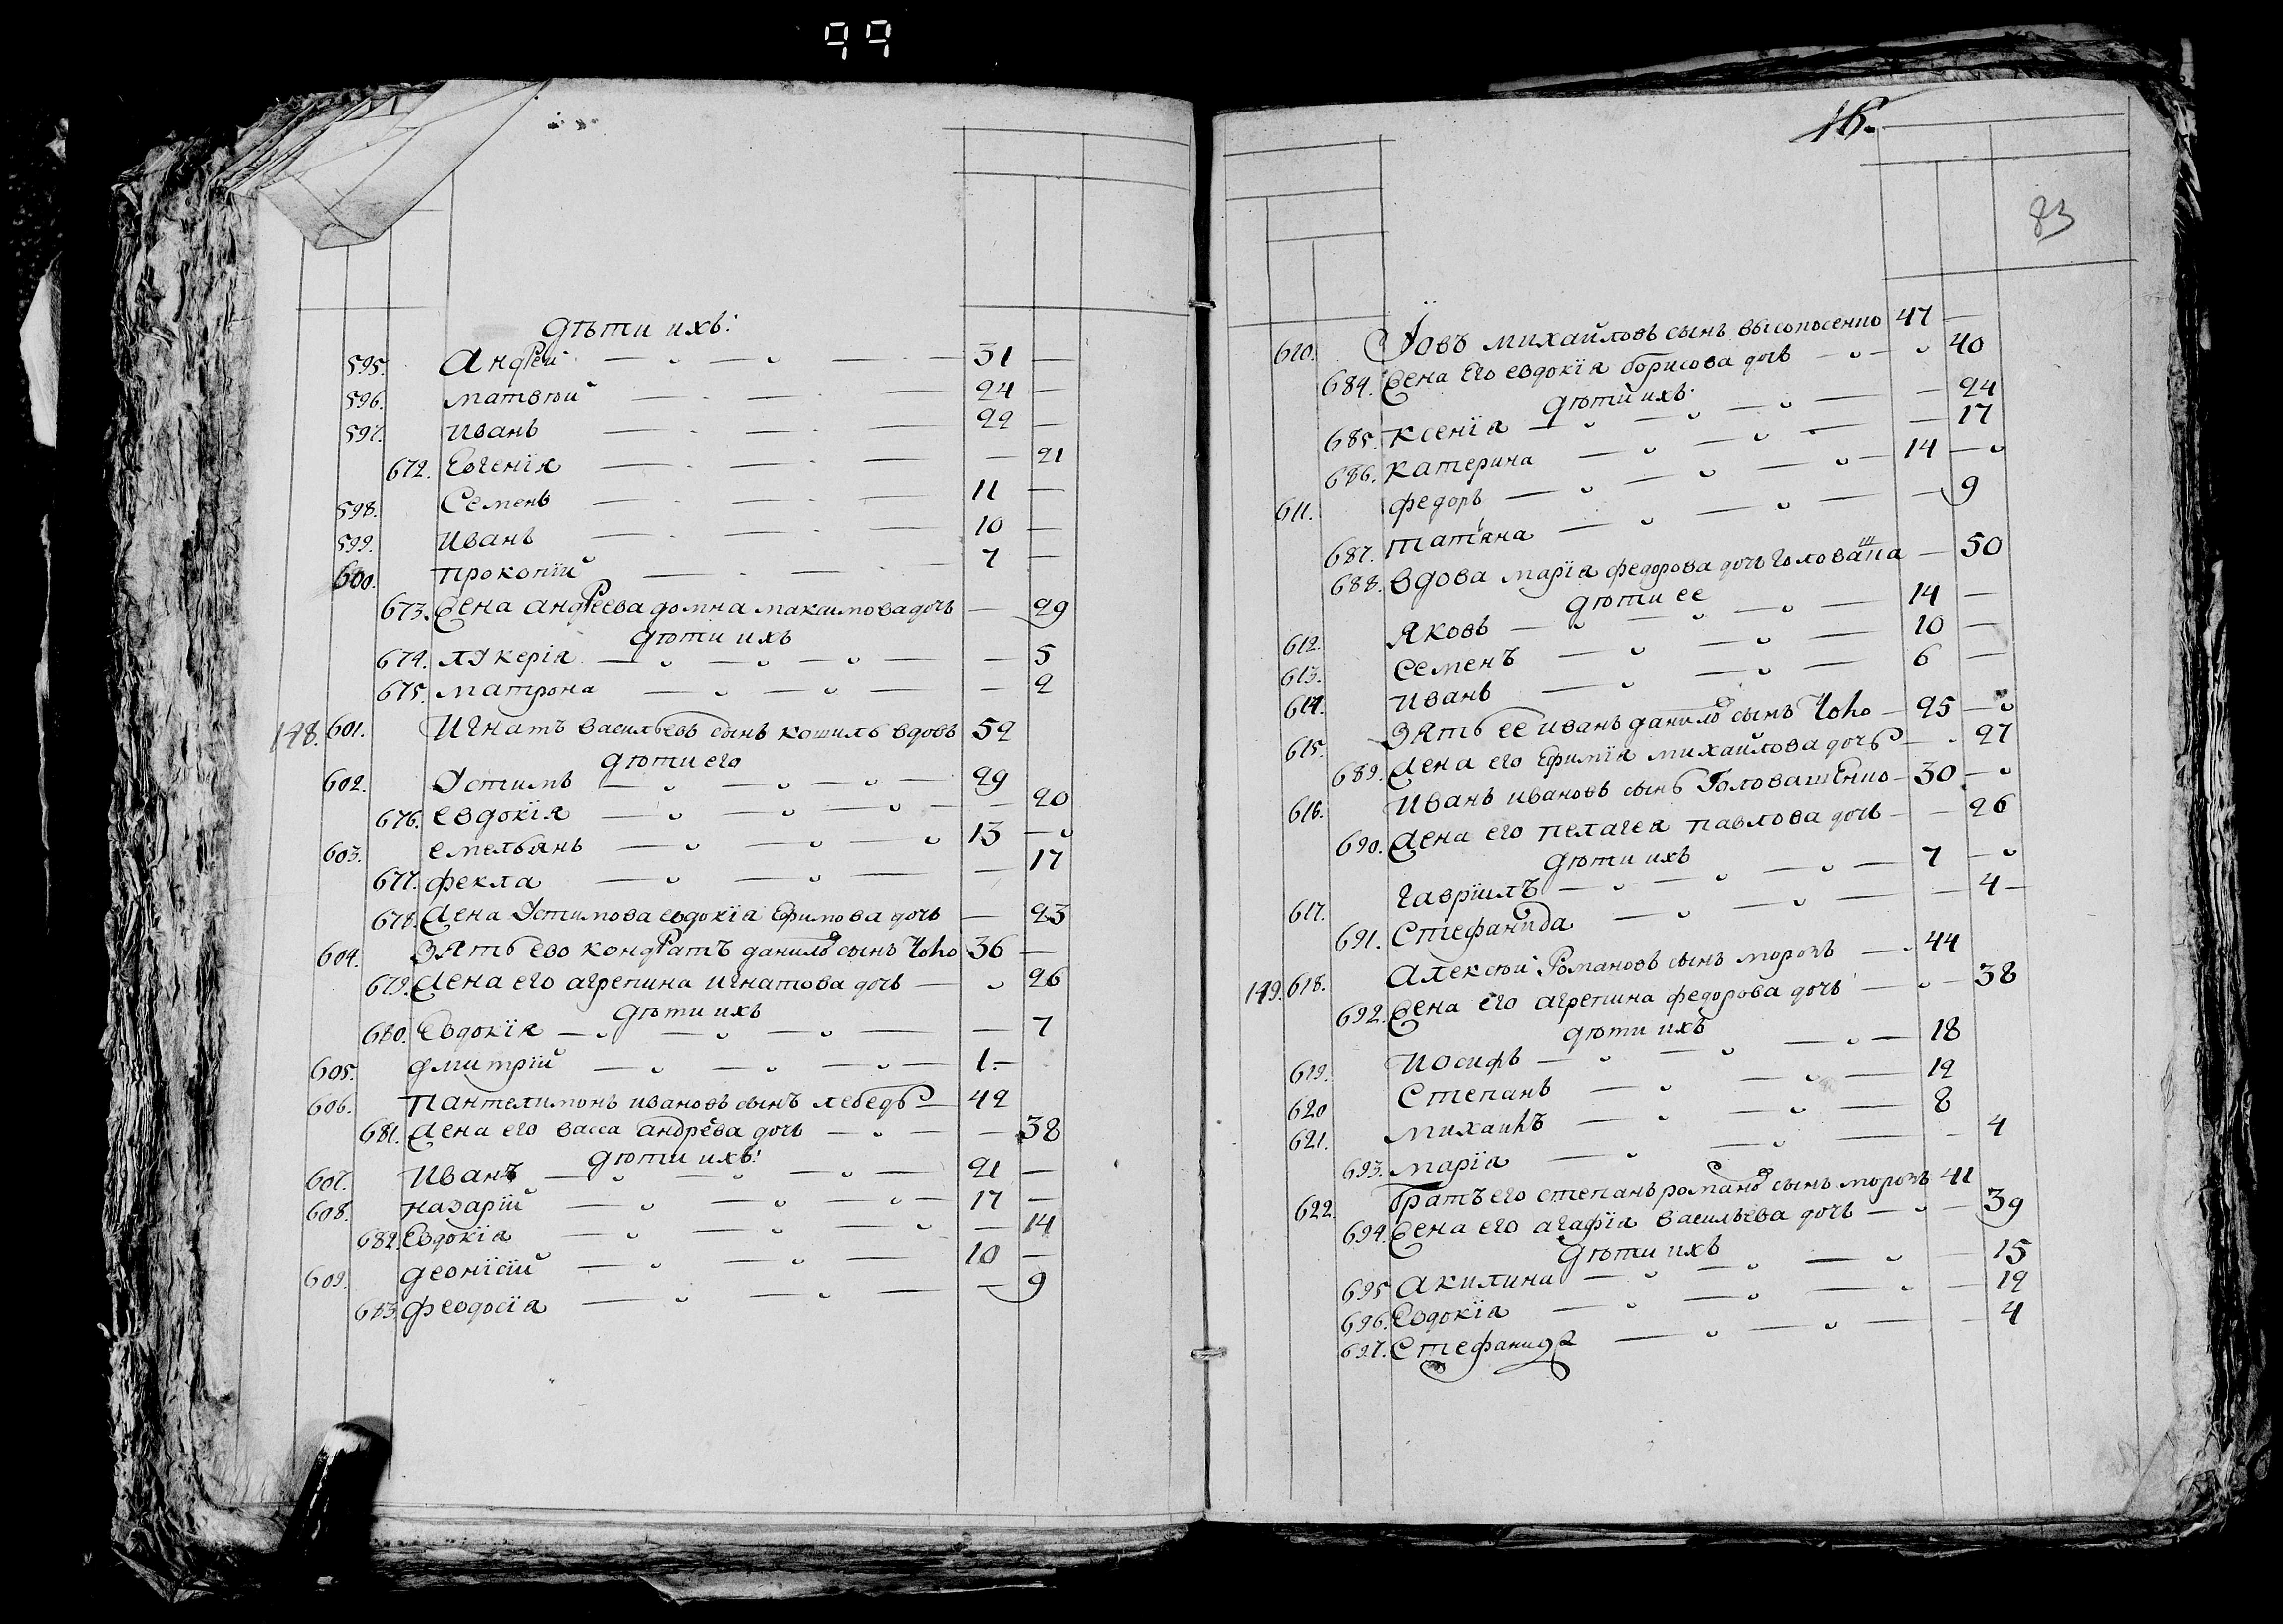 99
дѣти ихъ:
595. Андрей 31 —
596. матвѣй 24 —
597. иванъ 22 —
672. Евгенїя — 21
598. Семенъ 11 —
599. иванъ 10 —
600. прокопїй 7 —
673. жена андреева домна максимова дочь — 29
дѣти ихъ
674. лукерїя — 5
675. матрона — 2
148. 601. Игнатъ васильевъ сынъ кошиль вдовъ 52
дѣти его
602. Устимъ 29
676. евдокїя — 20
603. емельянъ 13 —
677. фекла — 17
678. жена Устимова евдокїя Ефимова дочь — 23
604. зять ево кондратъ данилов сынъ 36 —
679. жена его агрепина игнатова дочь — 26
дѣти ихъ
680. Евдокїя — 7
605. дмитрїй 1 —
606. пантелимонъ ивановъ сынъ лебедь 42
681. жена его васса андрева дочь — 38
дѣти ихъ:
607. Иванъ 21 —
608. назарїй 17 —
682. Евдокїя — 14
609. деонїсїй 10 —
683. феодосїя — 9
16.
83
610. Їовъ михайловъ сынъ высопосенко 47 —
684. жена его евдокїя борисова дочь 40
дѣти ихъ:
685. ксенїя — 24
686. катерина — 17
611. федоръ 14 —
687. татїяна — 9
688. вдова марїя федорова дочь головаша — 50
дѣти ее
612. яковъ 14 —
613. семенъ 10 —
614. иванъ 6 —
615. зять ее иванъ данилов сынъ 25 —
689. жена его ефимїя михайлова дочь 27
616. иванъ ивановъ сынъ Головашенко 30 —
690. жена его пелагея павлова дочь — 26
дѣти ихъ
617. гаврїилъ 7 —
691. Стефанїда — 4 —
149. 618. Алексѣй Романовъ сынъ морозъ 44
692. жена его агрепина федорова дочь 38
дѣти ихъ
619. иосифъ 18
620 Степанъ 12
621. михаилъ 8
693. марїя — 4
622. братъ его степанъ романов сынъ морозъ 41
694. жена его агафїя васильева дочь 39
дѣти ихъ
695 акилина — 15
696. Евдокїя — 12
697. Стефанида — 4